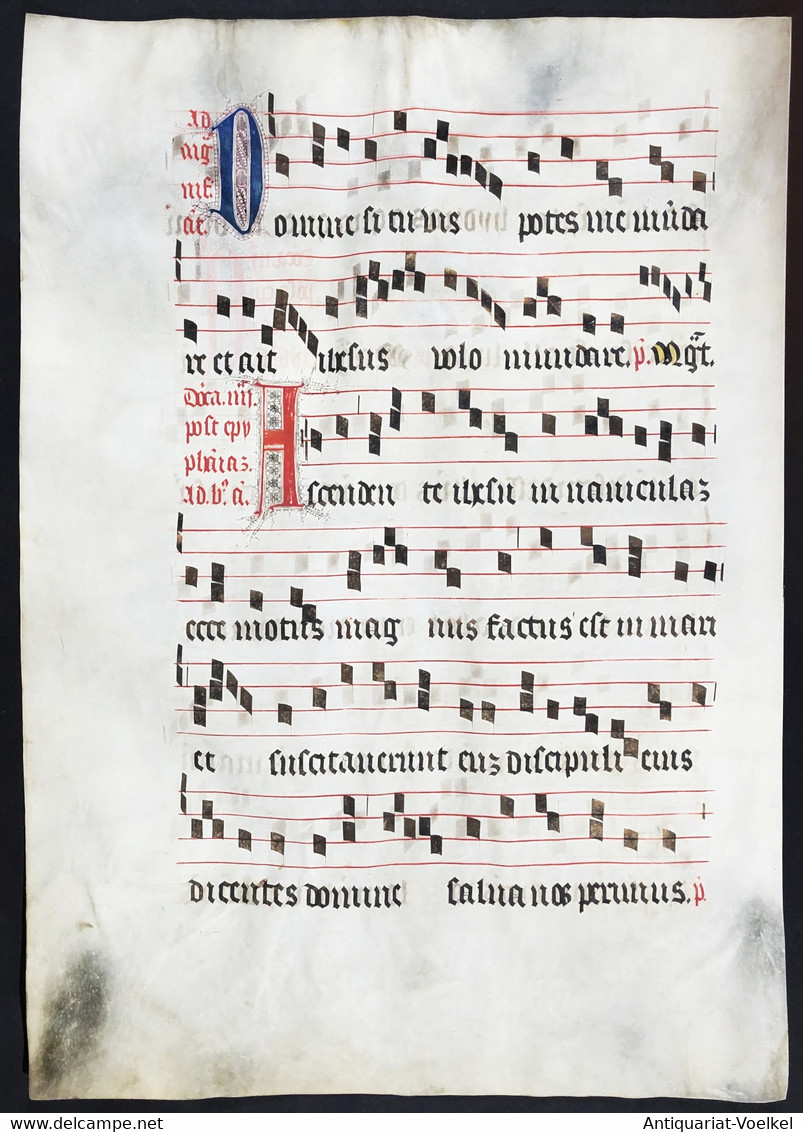 Ad
mag
nif.
cat.
Domine si tu vis potes me mūda
re et ait ihesus volo mundare. p̄. Mg̅t.
Dn̄ca. iiij.
post epy
phaīaz.
ad. b.º ā.
Ascenden te ihesu in naviculaz
ecce motus mag nus factus est in mari
et suscitaverunt euz discipuli eius
dicentes domine salva nos perimus. p̄.
www.delcampe.net
Antiquariat-Voelkel